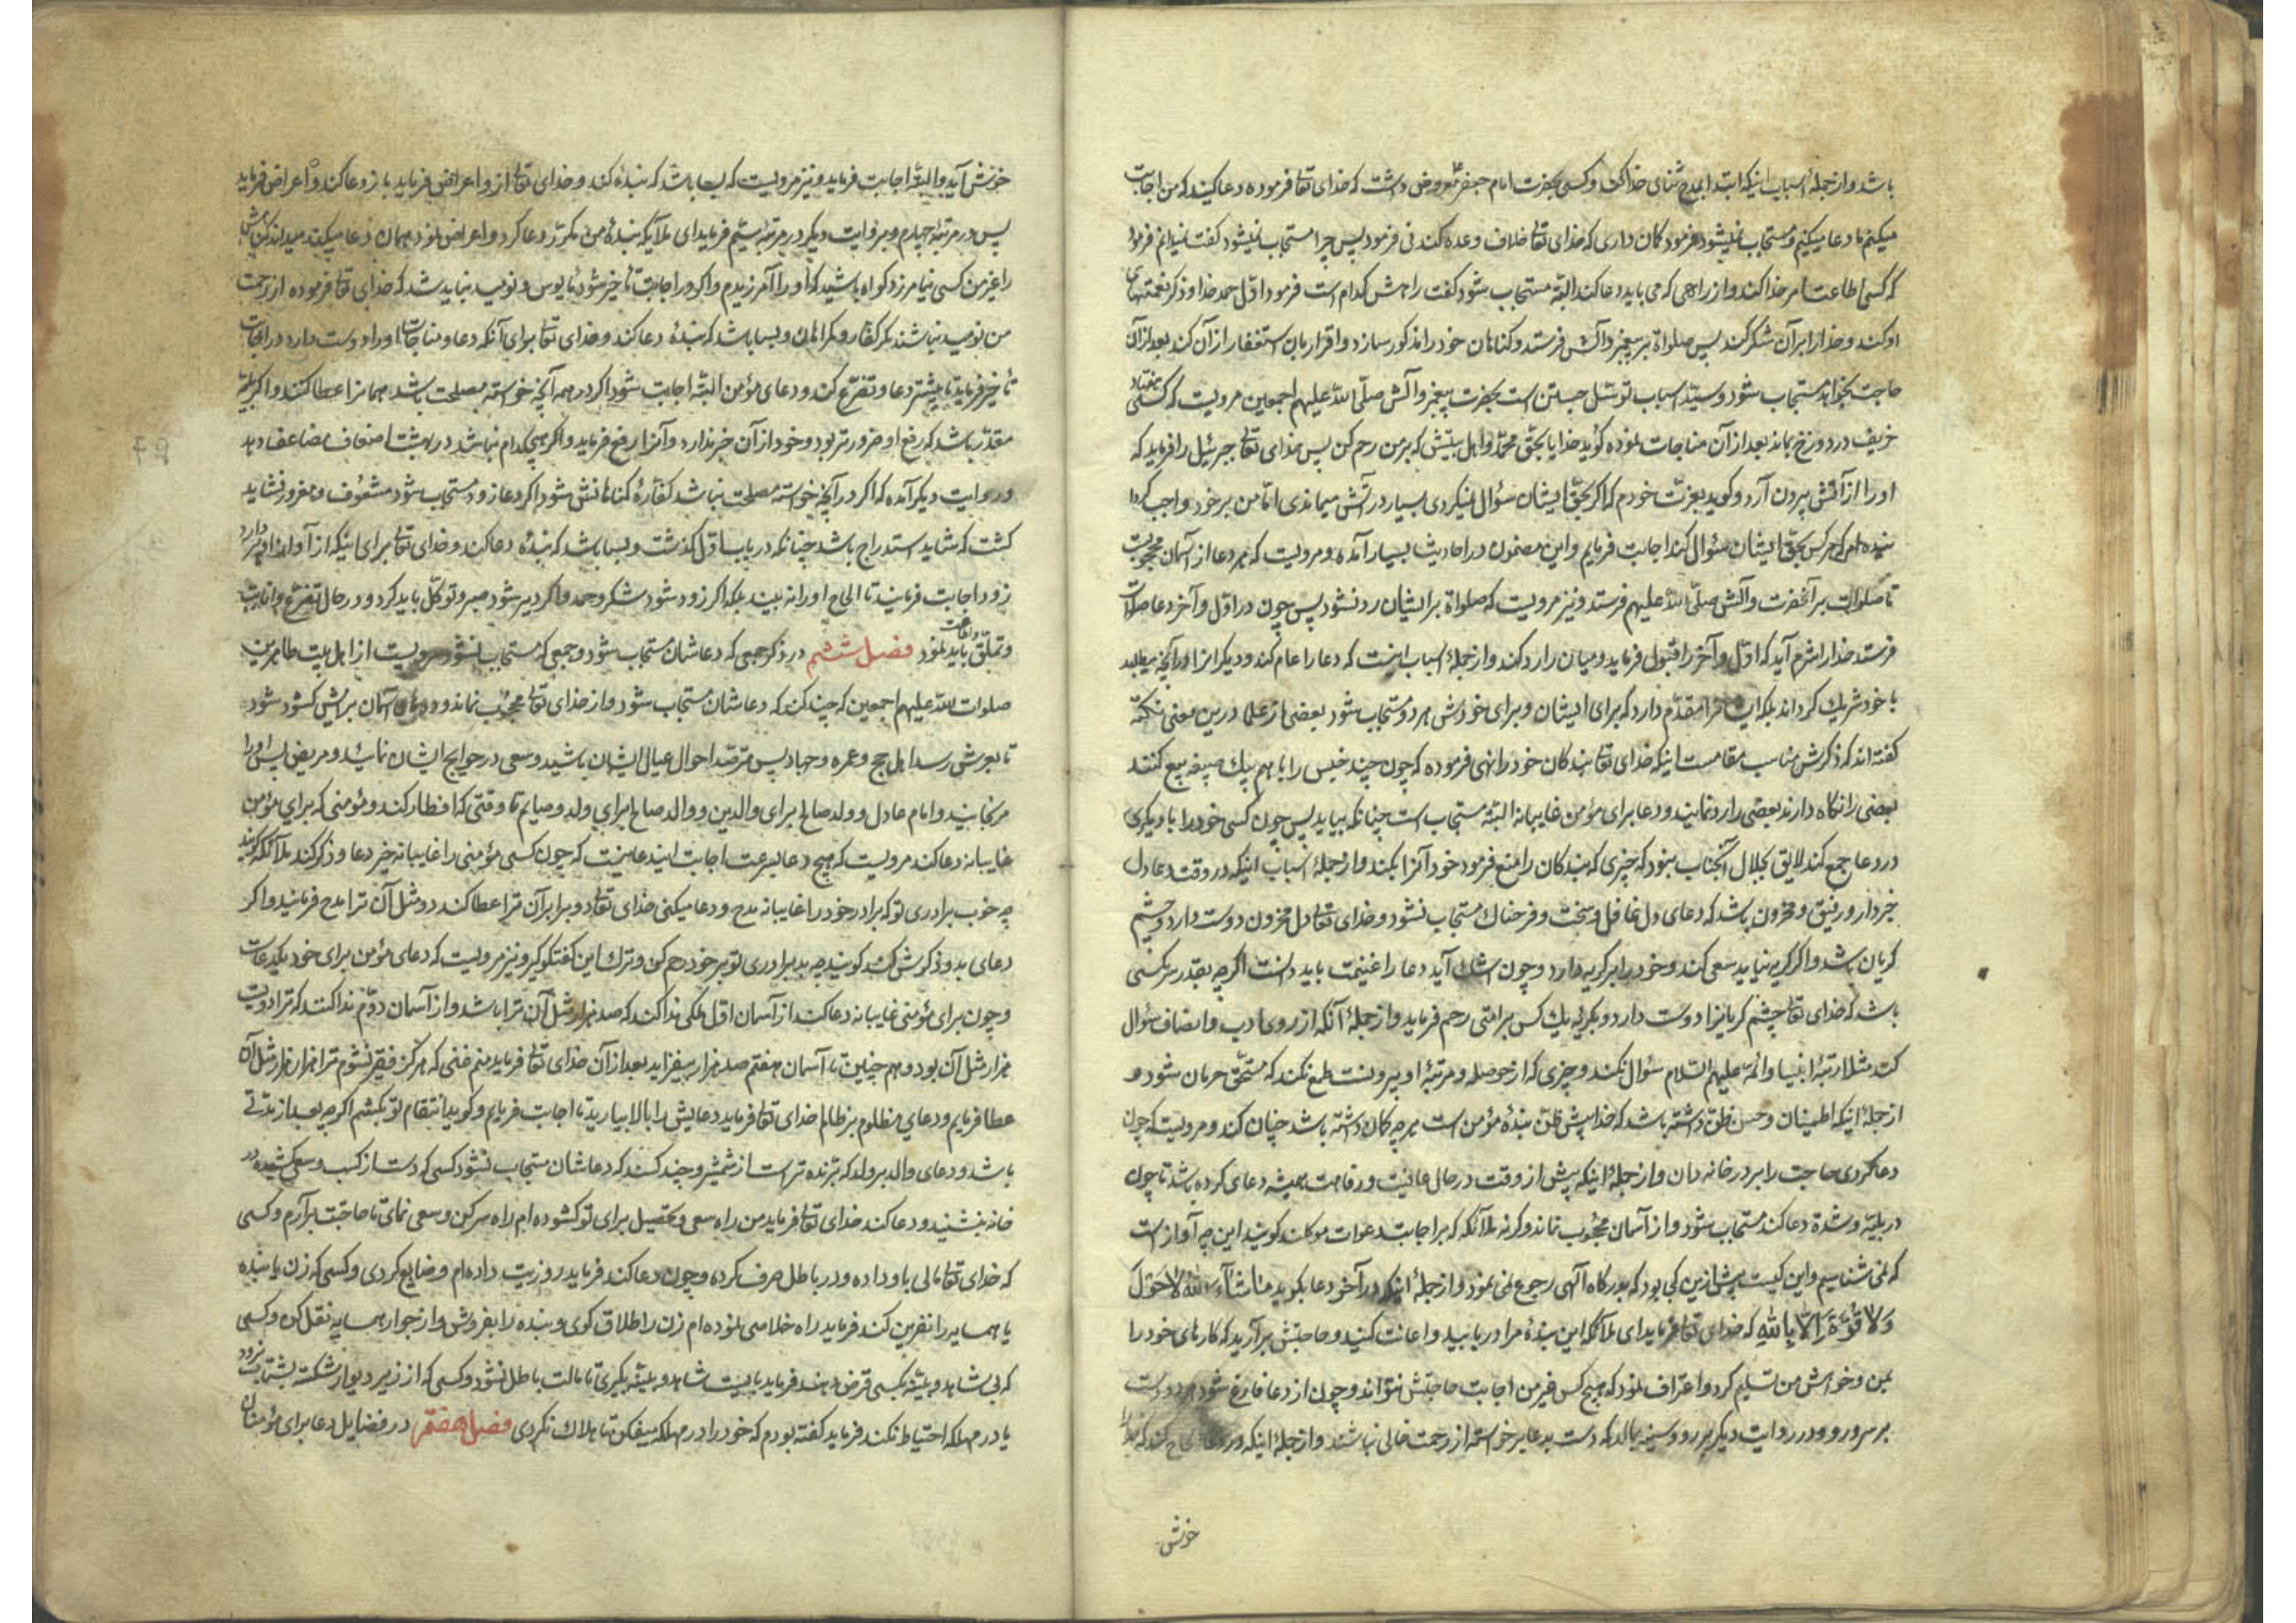 باشد و از جملهٔ اسباب اینکه ابتدا بمدح و ثنای خدا کند و کسی بحضرت امام جعفر معروض داشت که خدای تعا فرموده دعا کنید که من اجابت
میکنم ما دعا میکنیم و مستجاب نمیشود فرمود کمان داری که خدای تعا خلاف وعده کند نی فرمود پس چرا مستجاب نمیشود کفت نمیدانم فرمود
که کسی اطاعت امر خدا کند و از راهی که می باید دعا کند البته مستجاب شود کفت راهش کدام است فرمود اوّل حمد خدا و ذکر نعمتهای
او کند و خدا را بر آن شکر کند پس صلواة بر پیغمبر و آلش فرستد و کناهان خود را مذکور سازد و اقرار بان استغفار از آن کند بعد از آن
حاجت بخواهد مستجاب شود و سیّد اسباب توسّل جستن است بحضرت پیغمبر و آلش صلّی الله علیهم اجمعین مرویست که کسی هفتاد
خریف در دوزخ بماند بعد از آن مناجات نموده کوید خدایا بحقّ محمّد و اهل بیتش که بر من رحم کن پس خدای تعا جبرئیل را فرماید که
او را از آتش بیرون آرد و کوید بعزت خودم که اکر بحقّ ایشان سؤال نمیکردی بسیار در آتش میماندی امّا من بر خود واجب کردا
نیده ام که هر کس بحقّ ایشان سؤال کند اجابت فرمایم و این مضمون در احادیث بسیار آمده و مرویست که هر دعا از آسمان محجوبست
تا صلوات بر آنحضرت و آلش صلّی الله علیهم فرستد و نیز مرویست که صلواة بر ایشان رد نشود پس چون در اوّل و آخر دعا صلوات
فرستد خدا را شرم آید که اوّل و آخر را قبول فرماید و میان را رد کند و از جملهٔ اسباب اینست که دعا را عام کند و دیکرانرا در آنچه میطلبد
با خود شریك کرداند بلکه ایشانرا مقدّم دارد که برای ایشان و برای خودش هر دو مستجاب شود بعضی از علما درین معنی نکتهٔ
کفته اند که ذکرش مناسب مقامست اینکه خدای تعا بندکان خود را نهی فرموده که چون چند خبیس را با هم بیك صیغه بیع کنند
بعضی را نکاه دارند بعضی را رد نمایند و دعا برای مؤمن غایبانه البته مستجاب است چنانکه بیاید پس چون کسی خود را با دیکری
در دعا جمع کند لایق بجلال آنجناب نبود که چیزی که بندکان را منع فرمود خود آنرا بکند و از جملهٔ اسباب اینکه در وقت دعا دل
خبردار و رقیق و محزون باشد که دعای دل غافل و سخت و فرحناك مستجاب نشود و خدای تعا دل محزون دوست دارد و چشم
کریان باشد و اکر کریه نیاید سعی کند و خود را بر کریه دارد و چون اشك آید دعا را غنیمت باید دانست اکر چه بقدر سر مکسی
باشد که خدای تعا چشم کریانرا دوست دارد و بکریهٔ یك کس بر امّتی رحم فرماید و از جملهٔ آنکه از روی ادب و انصاف سؤال
کند مثلا رتبهٔ انبیا و ائمّه علیهم السّلام سؤال نکند و چیزی که از حوصله و مرتبهٔ او بیرونست طمع نکند که مستحقّ حرمان شود و
از جملهٔ اینکه اطمینان و حسن ظنّ داشته باشد که خدا پیش ظنّ بندهٔ مؤمن است هر چه کمان داشته باشد چنان کند و مرویست که چون
دعا کردی حاجت را بر در خانه دان و از جملهٔ اینکه پیش از وقت در حال عافیت و رفاهت همیشه دعای کرده باشد تا چون
در بلیّه و شدّة دعا کند مستجاب شود و از آسمان محجوب نماند و کرنه ملائکه که بر اجابت دعوات موکلند کویند این چه آواز است
که نمی شناسیم و این کیست پیش ازین کی بود که بدرکاه آلهی رجوع نمی نمود و از جملهٔ اینکه در آخر دعا بکوید مَا شَآءَ اللهُ لَا حَوْلَ
وَلَا قُوَّةَ اِلَّا بِاللهِ که خدای تعا فرماید ای ملائکه این بندهٔ مرا دریابید و اعانت کنید و حاجتش برآرید که کارهای خود را
بمن و خواهش من تسلیم کرد و اعتراف نمود که هیچ کس غیر من اجابت حاجتش نتواند و چون از دعا فارغ شود هر دو دست
بر سر و رو و در روایت دیکر بر رو و سینه بمالد که دست بدعا برخواسته از رحمت خالی نباشد و از جملهٔ اینکه در دعا الحاح کند که خدا را
خوش
خوش آید و البته اجابت فرماید و نیز مرویست که بسا باشد که بنده کند و خدای تعا از او اعراض فرماید باز دعا کند و اعراض فرماید
پس در مرتبهٔ چهارم و بروایت دیکر در مرتبهٔ سیّم فرماید ای ملائکه بندهٔ من مکرّر دعا کرد و اعراض نمودم همان دعا میکند میداند که کناهش
را غیر من کسی نیامرزد کواه باشید که او را آمرزیدم و اکر در اجابت تأخیر شود مأیوس و نومید نباید شد که خدای تعا فرموده از رحمت
من نومید نباشند مکر کفّار و کمراهان و بسا باشد که بنده دعا کند و خدای تعا برای آنکه دعا و مناجات او را دوست دارد در اجابت
تأخیر فرماید تا بیشتر دعا و تضرّع کند و دعای مؤمن البته اجابت شود اکر در همه آنچه خواسته مصلحت باشد همانرا عطا کنند و اکر بلیّه
مقدّر باشد که رفع او ضرورتر بود و خود از آن خبر ندارد و آنرا رفع فرماید و اکر هیچکدام نباشد در بهشت اضعاف مضاعف دهد
و روایت دیکر آمده که اکر در آنچه خواسته مصلحت نباشد کفّارهٔ کناهانش شود اکر دعا زود مستجاب شود مشعوف و مغرور نشاید
کشت که شاید استدراج باشد چنانکه در باب اوّل کذشت و بسا باشد که بنده دعا کند و خدای تعا برای اینکه از آواز او نفرت دارد
زود اجابت فرمایند تا الحاح او را نه بیند بلکه اکر زود شود شکر و حمد و اکر دیر شود صبر و توکّل باید کرد و در هر حال تضرّع و انابت
و تملّق باید نمود فصل ششم در ذکر جمعی که دعاشان مستجاب شود و جمعی که مستجاب نشود مرویست از اهل بیت طاهرین
صلوات الله علیهم اجمعین که چند کنند که دعاشان مستجاب شود و از خدای تعا محجوب نماند و درهای آسمان برایش کشود شود
تا بعرش رسد اهل حجّ و عمره و جهاد پس مترصّد احوال عیال ایشان باشید و سعی در حوایج ایشان نمائید و مریض پس او را
مرنجانید و امام عادل و ولد صالح برای والدین و والد صالح برای ولد و صایم تا وقتی که افطار کند و مؤمنی که برای مؤمن
غایبانه دعا کند مرویست که هیچ دعا بسرعت اجابت این دعا نیست که چون کسی مؤمنی را غایبانه خیر دعا و ذکر کند ملائکه کویند
چه خوب برادری تو که برادر خود را غایبانه مدح و دعا میکنی خدای تعا دو برابر آن ترا عطا کند و دو مثل آن ترا مدح فرمایند و اکر
دعای بد و ذکرش کند کویند چه بد برادری تو بر خود رحم کن و ترك این کفتکو کیر و نیز مرویست که دعای مؤمن برای خود یکدعاست
و چون برای مؤمنی غایبانه دعا کند از آسمان اوّل ملکی ندا کند که صد هزار مثل آن ترا باشد و از آسمان دوّم ندا کنند که ترا دویست
هزار مثل آن بود و هم چنین تا آسمان هفتم صد هزار بیفزاید بعد از آن خدای تعا فرماید منم غنی که هرکز فقیر نشوم ترا هزار هزار مثل آن
عطا فرمایم و دعای مظلوم بر ظالم خدای تعا فرماید دعایش را بالا بیارید تا اجابت فرمایم و کوید انتقام تو بکشم اکر چه بعد از مدّتی
باشد و دعای والد بر ولد که برّنده تر است از شمشیر و چند کسند که دعاشان مستجاب نشود کسی که دست از کسب و سعی کشیده در
خانه بنشیند و دعا کند خدای تعا فرماید من راه سعی و تحصیل برای تو کشوده ام راه سر کن و سعی نمای تا حاجتت برآرم و کسی
که خدای تعا مالی باو داده و در باطل صرف کرده و چون دعا کند فرماید روزیت داده ام و ضایع کردی و کسی که زن یا بنده
یا همسایه را نفرین کند فرماید راه خلاصی نموده ام زن را طلاق کوی و بنده را بفروش و از جوار همسایه نقل کن و کسی
که بی شاهد و بیّنه بکسی قرض دهد فرماید بایست شاهد و بیّنه بکیری تا مالت باطل نشود و کسی که از زیر دیوار شکسته بشتاب نرود
یا در مهلکه احتیاط نکند فرماید کفته بودم که خود را در مهلکه میفکن تا هلاك نکردی فصل هفتم در فضایل دعا برای مؤمنان